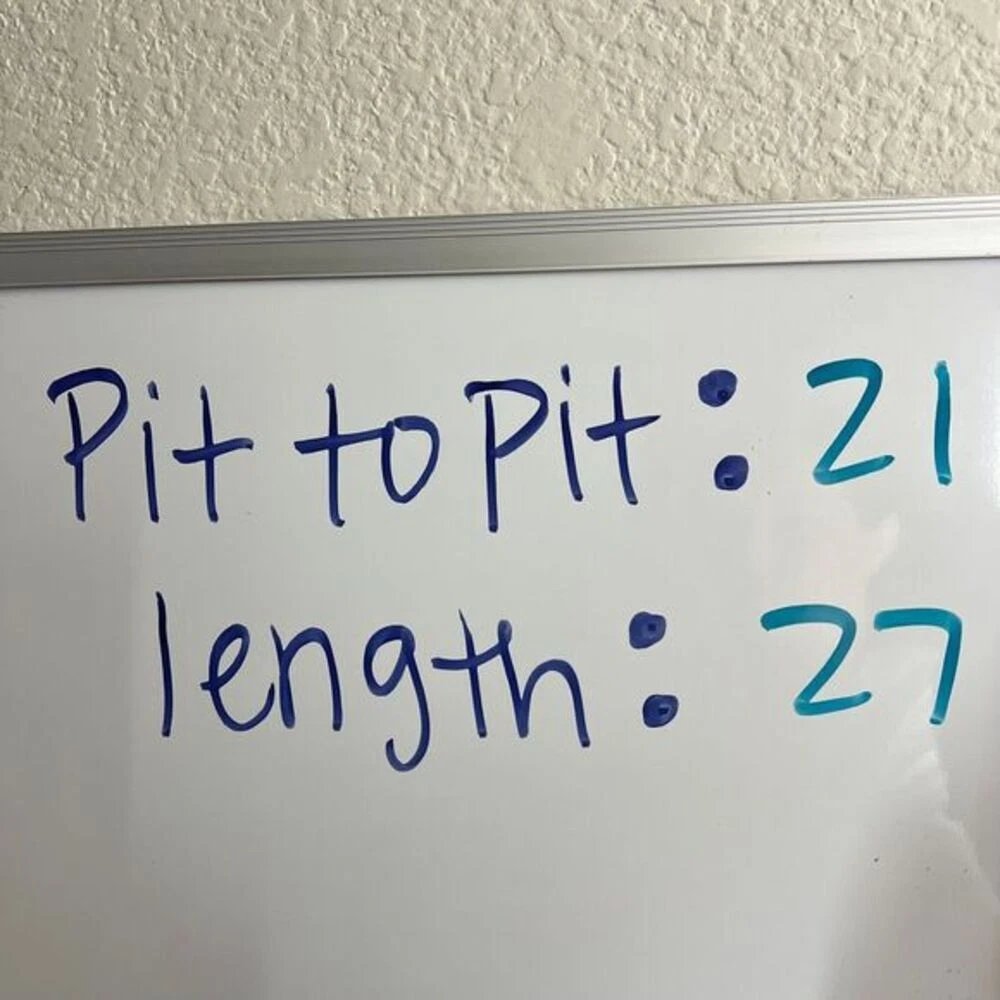 Pit to Pit: 21
length: 27